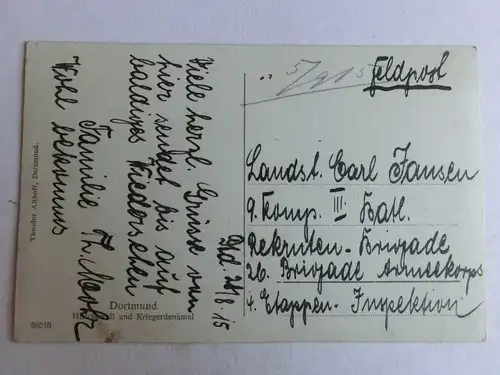 Feldpost
5/9 15
Landst. Carl Jansen
9. Komp. III Batl.
Rekruten-Brigade
26. Brigade Armeekorps
4. Etappen-Inspektion
Dtd. 24/8.15
Viele herzl. Grüsse von
hier sendet bis auf
baldiges Wiedersehen
Familie Th.
Wohl bekomms
Dortmund
und Kriegerdenkmal
Theodor Althoff, Dortmund.